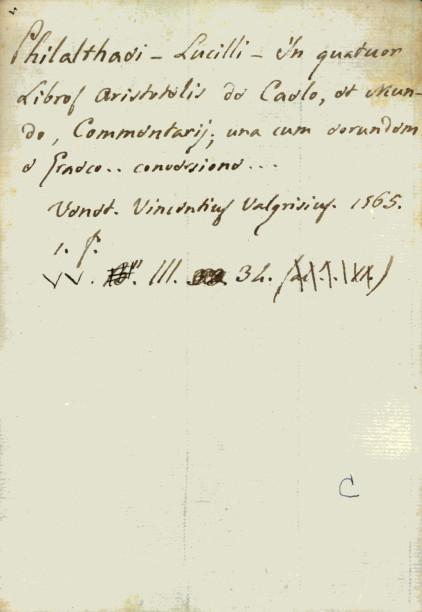 Philalthaei – Lucilli – In quatuor
Libros Aristotelis de Caelo, et Mun-
do, Commentarij; una cum eorundem
e Graeco.. conversione...
Venet. Vincentius Valgrisius. 1565.
1. f.
VV. III. 34.
C